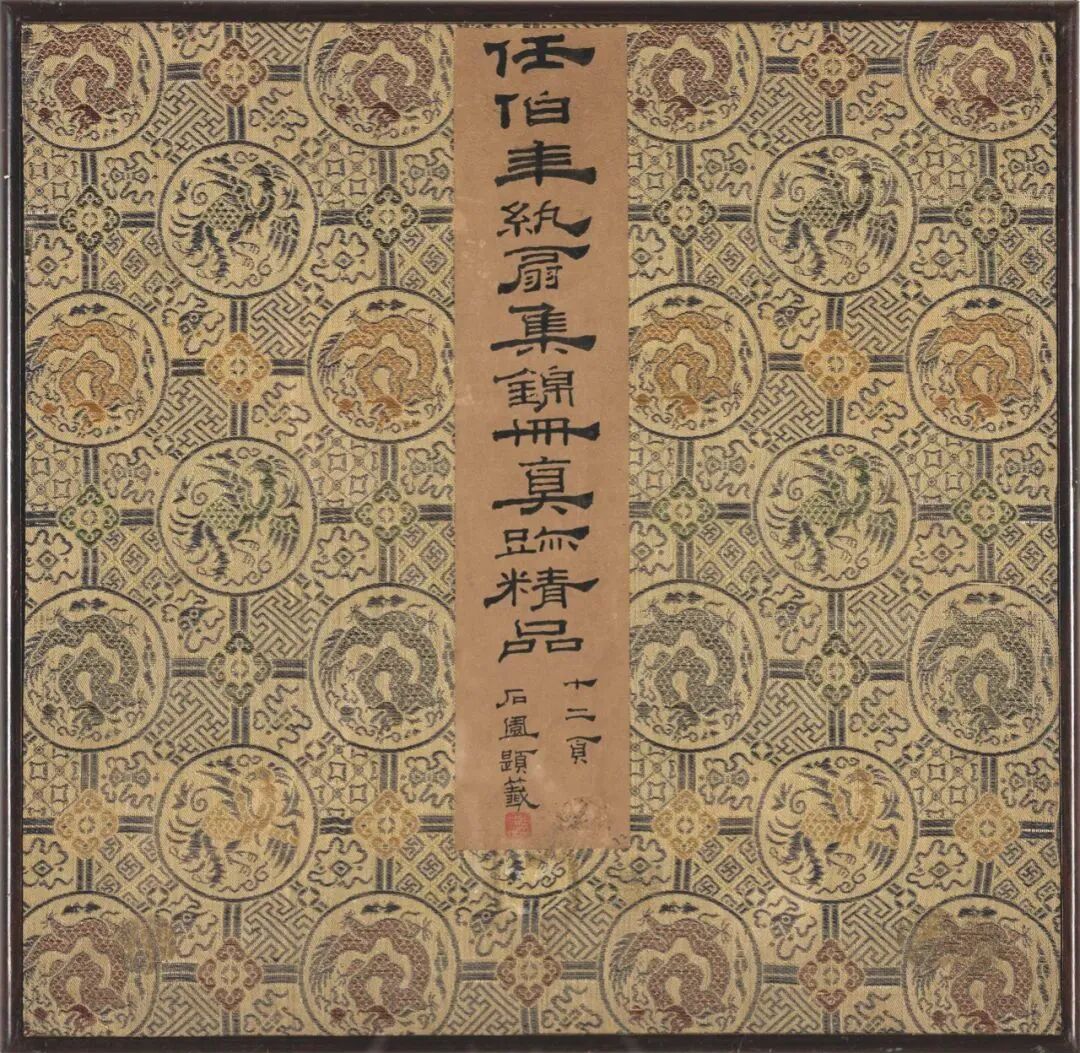 任伯年紈扇集錦冊真跡精品
十二頁
石園題籤